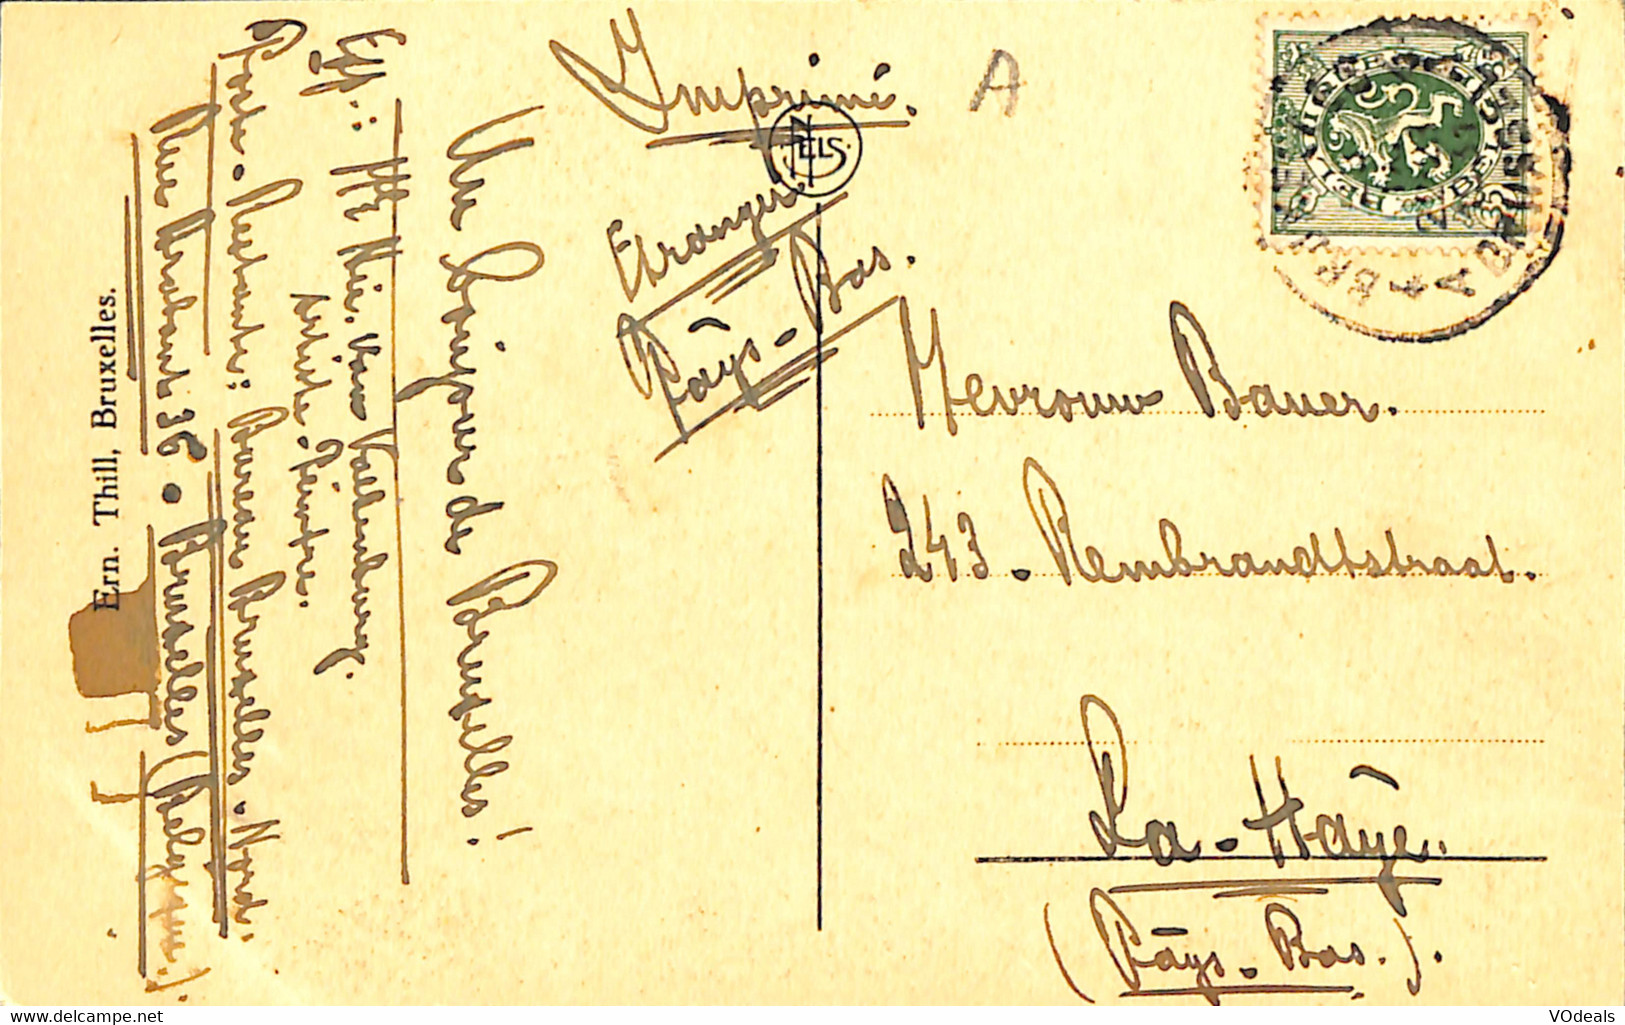 Imprimé.
A
NELS
Etranger
Pays-Bas.
Mevrouw Bauer.
243. Rembrandtstraat.
La-Haye.
(Pays-Bas.).
BELGIQUE
BELGIË
Un bonjour de Bruxelles!
Exp.: Mr Nic. van Valkenburg.
Artiste. Peintre.
Poste. Restante: Bureau Bruxelles. Nord.
Rue Brabant 36. Bruxelles (Belgique.).
Ern. Thill, Bruxelles.
VOdeals